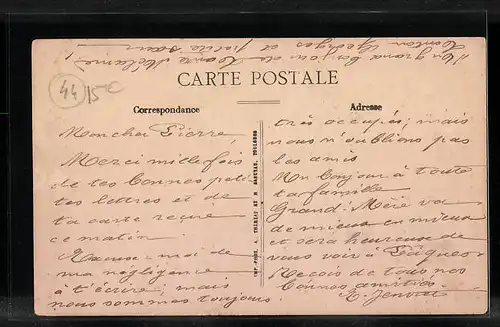 Un grand bonjour de
Tonton Georges et petite
CARTE POSTALE
44
15
Correspondance
Adresse
Mon cher Pierre
Merci mille fois
de tes bonnes petites
lettres et de
ta carte reçue
ce matin.
Excuse-moi de
ma négligence
à t'écrire, mais
nous sommes toujours
très occupés; mais
nous n'oublions pas
les amis
Mon bonjour à toute
ta famille
Grand-Mère va
de mieux en mieux
et sera heureuse de
vous voir à
Reçois de tous nos
bonnes amitiés
IMP.-PHOT. A. THIRIAT ET H. BASUYAU, TOULOUSE